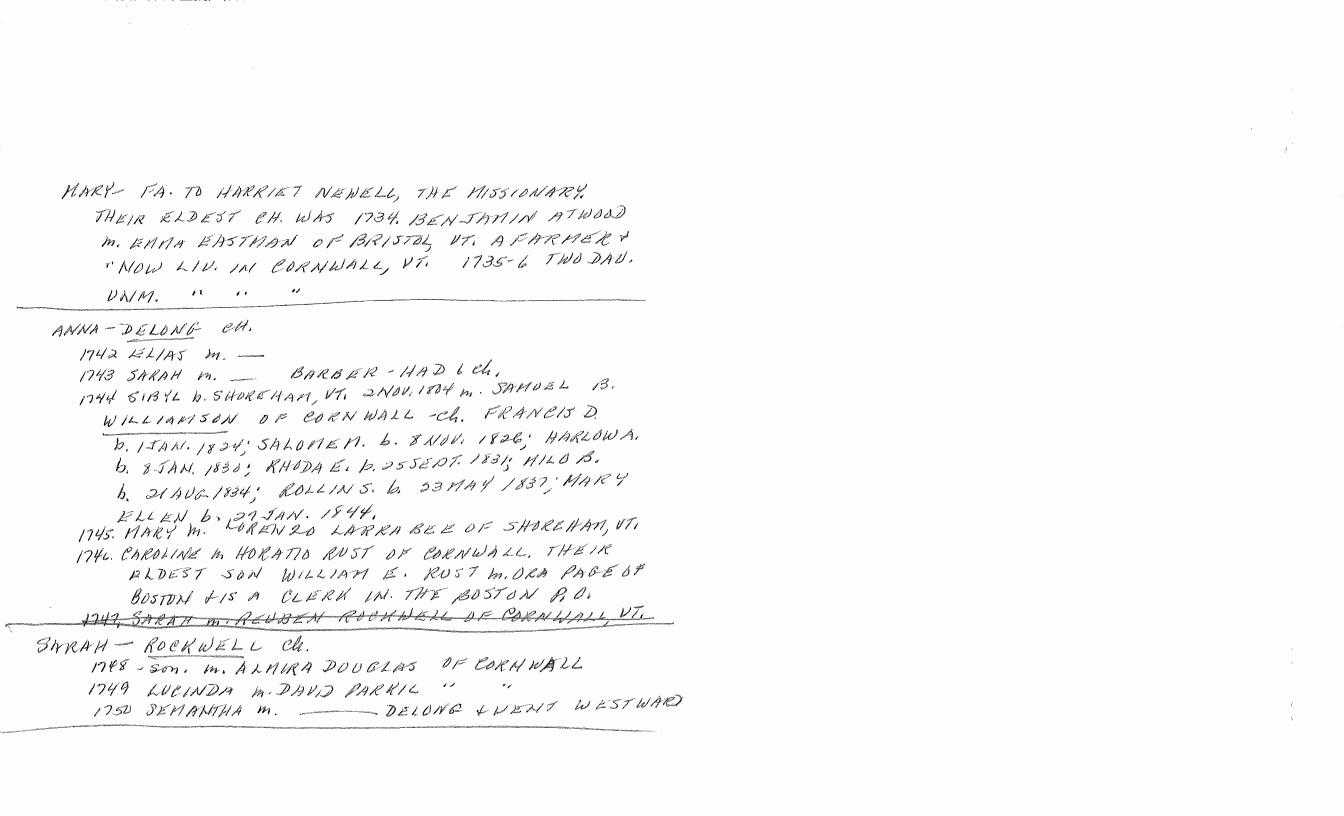 MARY- FA. TO HARRIET NEWELL, THE MISSIONARY.
THEIR ELDEST CH. WAS 1734. BENJAMIN ATWOOD
m. EMMA EASTMAN OF BRISTOL, VT. A FARMER &
"NOW LIV. IN CORNWALL, VT. 1735-6 TWO DAU.
UNM. " " "
ANNA - DELONG CH.
1742 ELIAS m. —
1743 SARAH m. — BARBER - HAD 6 ch.
1744 SIBYL b. SHOREHAM, VT. 2 NOV. 1804 m. SAMUEL B.
WILLIAMSON OF CORNWALL -ch. FRANCIS D.
b. 1 JAN. 1824; SALOME M. b. 8 NOV. 1826; HARLOW A.
b. 8 JAN. 1830; RHODA E. b. 25 SEPT. 1831; MILO B.
b. 21 AUG. 1834; ROLLIN S. b. 23 MAY 1837; MARY
ELLEN b. 27 JAN. 1844.
1745. MARY m. LORENZO LARRABEE OF SHOREHAM, VT.
1746. CAROLINE m HORATIO RUST OF CORNWALL. THEIR
ELDEST SON WILLIAM E. RUST m. ORA PAGE OF
BOSTON & IS A CLERK IN THE BOSTON P.O.
1747. SARAH m. REUBEN ROCKWELL OF CORNWALL, VT.
SARAH — ROCKWELL ch.
1748 - son. m. ALMIRA DOUGLAS OF CORNWALL
1749 LUCINDA m. DAVID PARKIL " "
1750 SEMANTHA m. —— DELONG & WENT WESTWARD